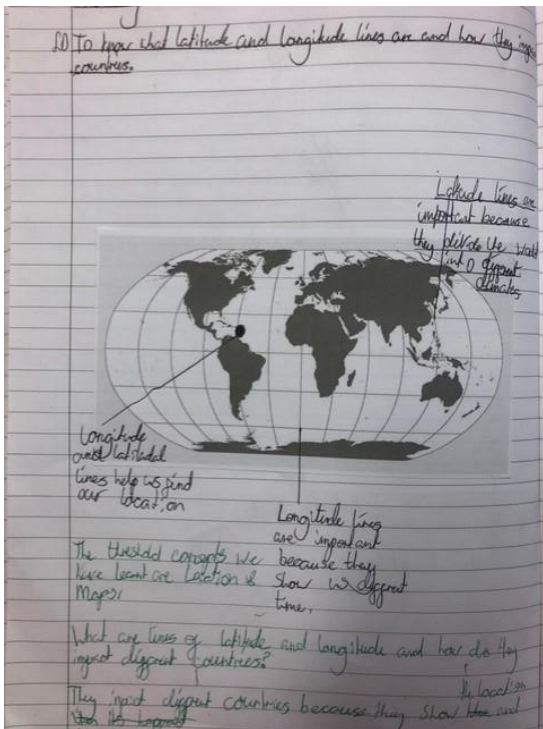 LO To know what latitude and longitude lines are and how they impact
countries.
Latitude lines are
important because
they divide the world
into different
climates
Longitude
and latitudal
lines help us find
our location
Longitude lines
are important
because they
show us different
time.
The threshold concepts we
have learnt are Location &
Maps.
What are lines of latitude and longitude and how do they
impact different countries?
the location
They impact different countries because they show and